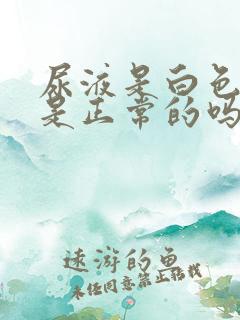 尿液呈白色
是正常的吗
远游的鱼
未经同意禁止转载